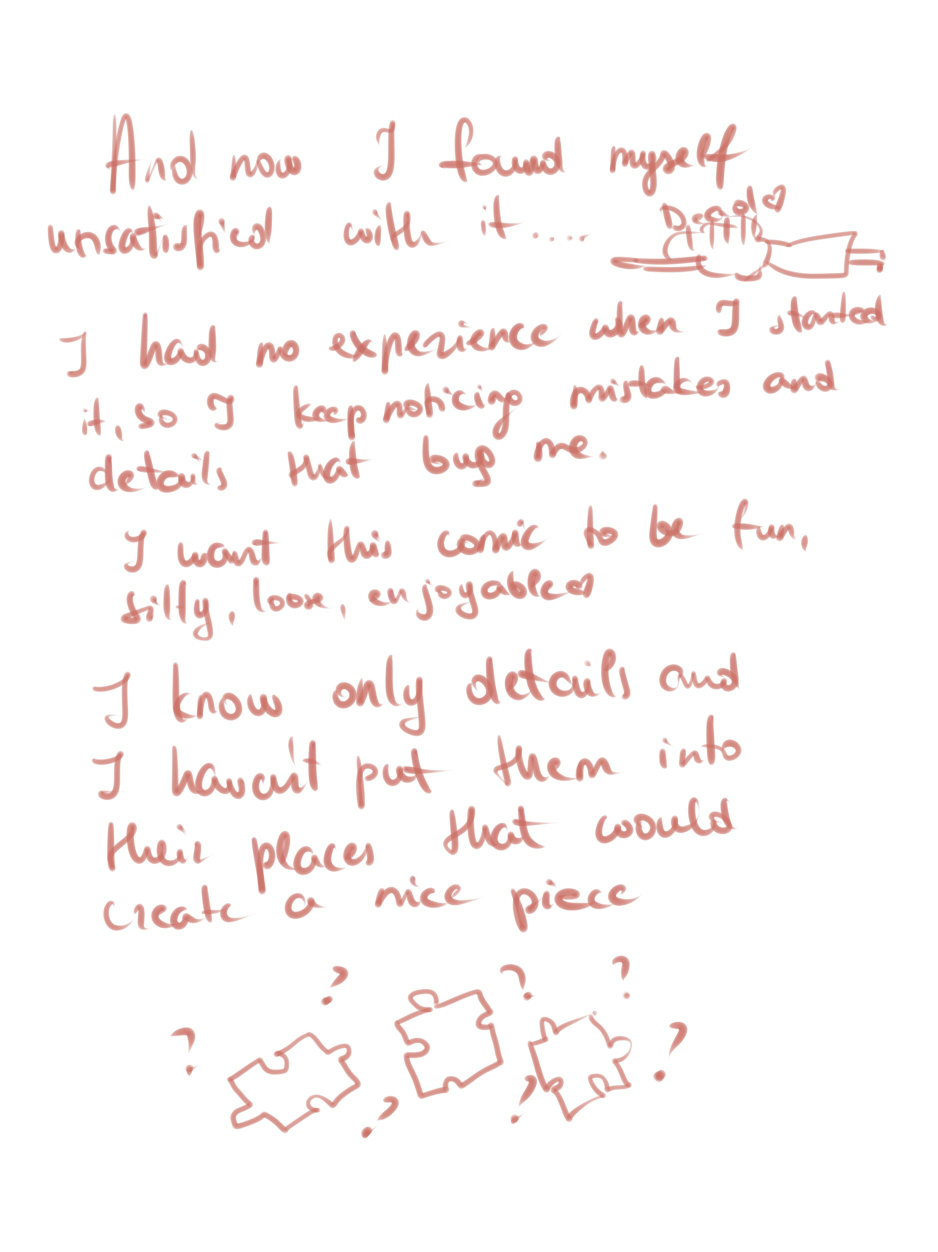 And now I found myself
unsatisfied with it.....
Dead♡
I had no experience when I started
it, so I keep noticing mistakes and
details that bug me.
I want this comic to be fun,
silly, loose, enjoyable♡
I know only details and
I haven't put them into
their places that would
create a nice piece
? ? ? ? ? ? ? ?